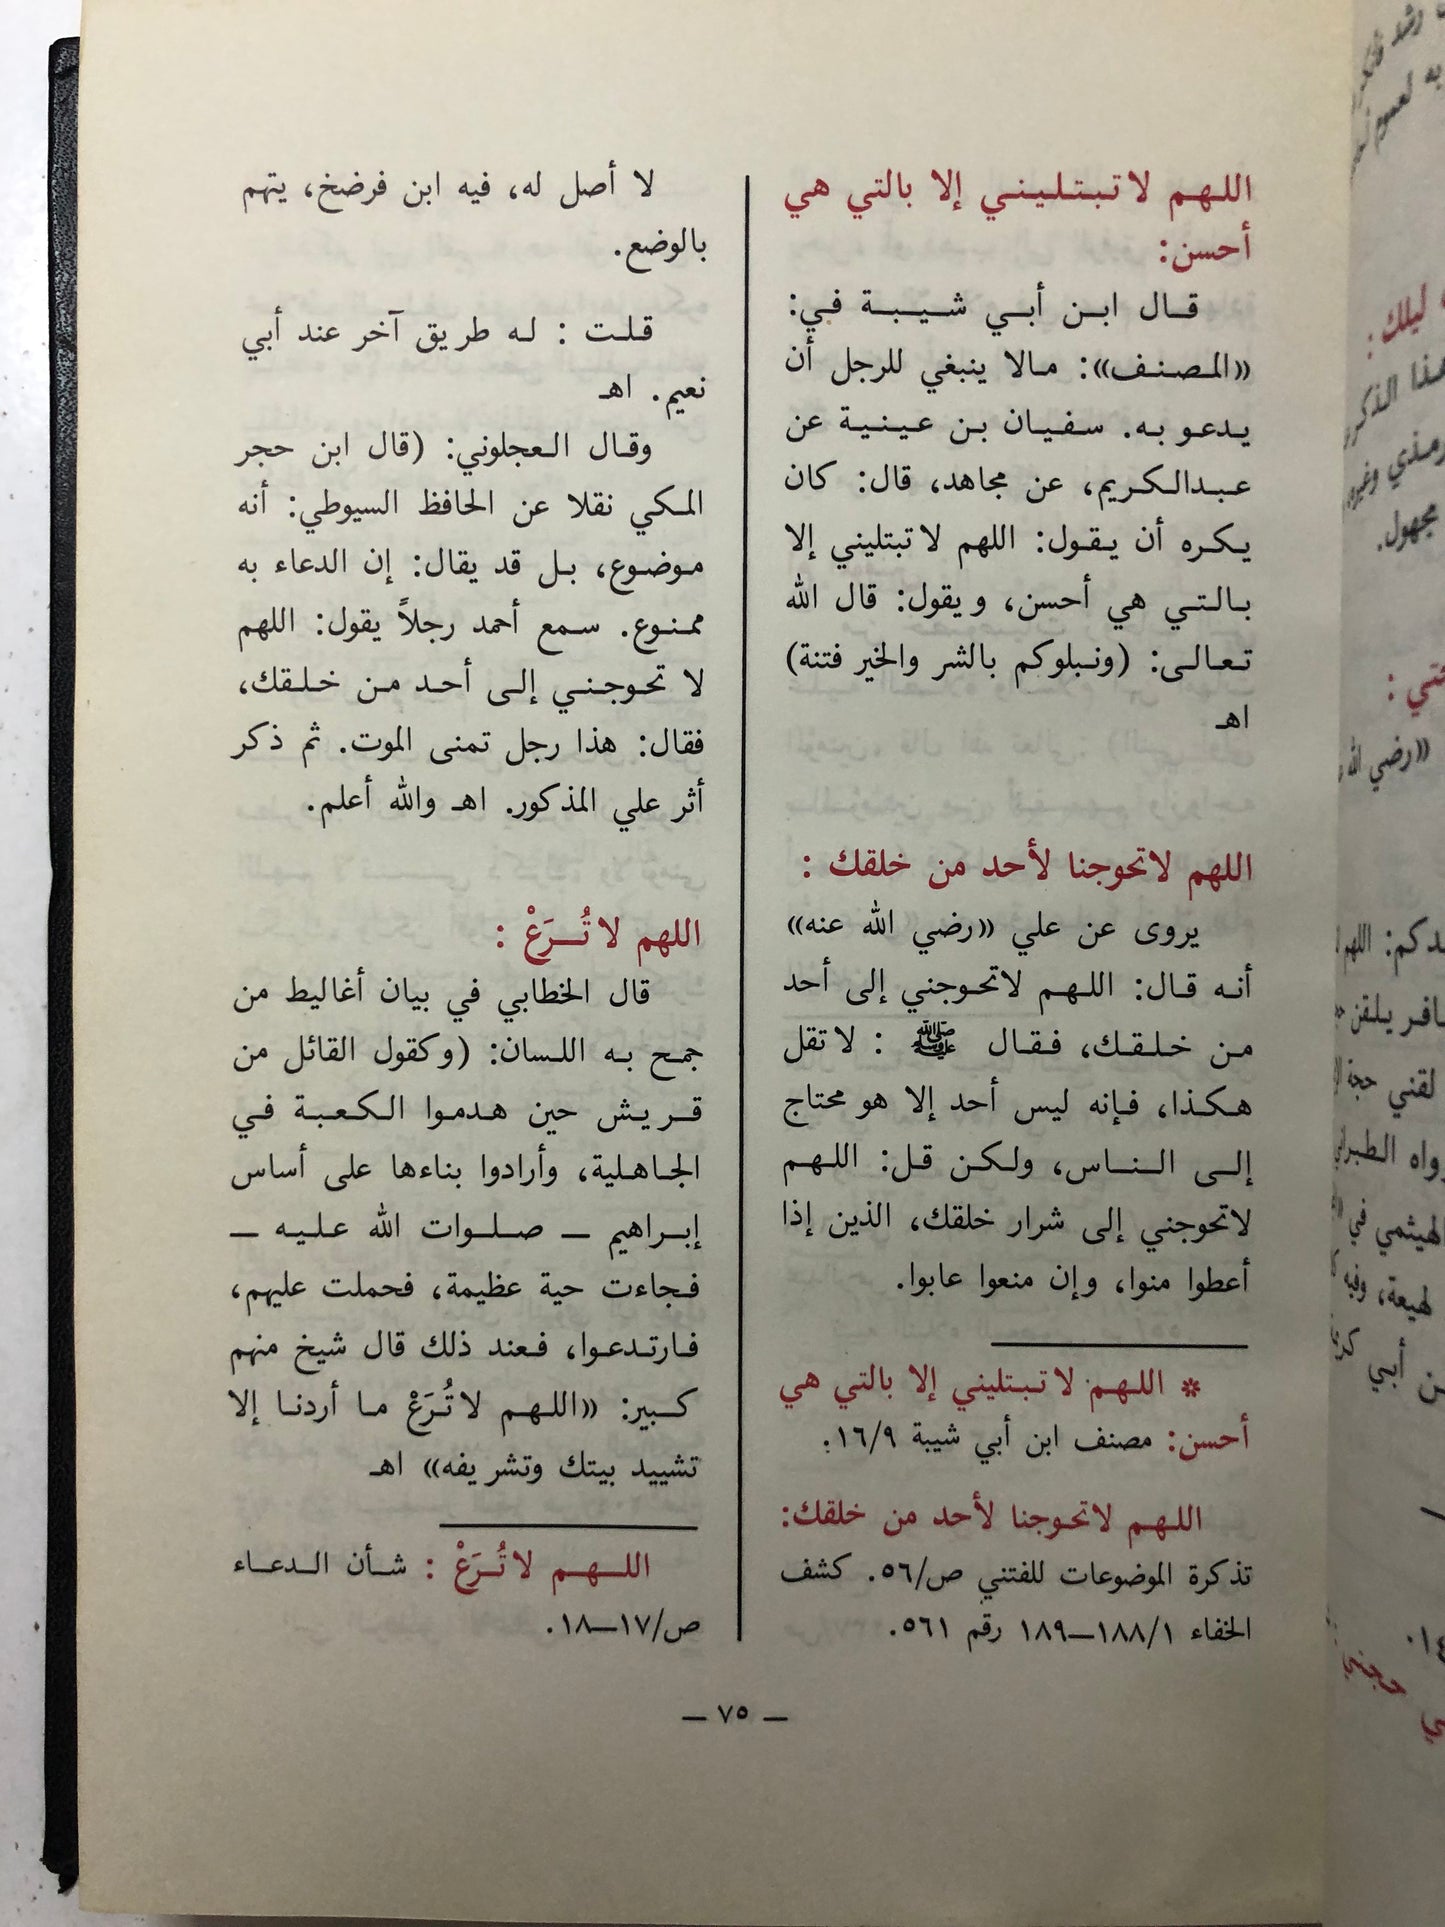 اللهم لا تبتليني إلا بالتي هي
أحسن:
قال ابن أبي شيبة في:
«المصنف»: مالا ينبغي للرجل أن
يدعو به. سفيان بن عيينة عن
عبدالكريم، عن مجاهد، قال: كان
يكره أن يقول: اللهم لا تبتليني إلا
بالتي هي أحسن، ويقول: قال الله
تعالى: (ونبلوكم بالشر والخير فتنة)
اهـ
اللهم لا تحوجنا لأحد من خلقك :
يروى عن علي «رضي الله عنه»
أنه قال: اللهم لا تحوجني إلى أحد
من خلقك، فقال ﷺ : لا تقل
هكذا، فإنه ليس أحد إلا هو محتاج
إلى الناس، ولكن قل: اللهم
لا تحوجني إلى شرار خلقك، الذين إذا
أعطوا منوا، وإن منعوا عابوا.
* اللهم لا تبتليني إلا بالتي هي
أحسن: مصنف ابن أبي شيبة ١٦/٩.
اللهم لا تحوجنا لأحد من خلقك:
تذكرة الموضوعات للفتني ص/٥٦. كشف
الخفاء ١٨٨/١—١٨٩ رقم ٥٦١.
لا أصل له، فيه ابن فرضخ، يتهم
بالوضع.
قلت : له طريق آخر عند أبي
نعيم. اهـ
وقال العجلوني: (قال ابن حجر
المكي نقلا عن الحافظ السيوطي: أنه
موضوع، بل قد يقال: إن الدعاء به
ممنوع. سمع أحمد رجلاً يقول: اللهم
لا تحوجني إلى أحد من خلقك،
فقال: هذا رجل تمنى الموت. ثم ذكر
أثر علي المذكور. اهـ والله أعلم.
اللهم لا تُرَعْ :
قال الخطابي في بيان أغاليط من
جمح به اللسان: (وكقول القائل من
قريش حين هدموا الكعبة في
الجاهلية، وأرادوا بناءها على أساس
إبراهيم — صلوات الله عليه —
فجاءت حية عظيمة، فحملت عليهم،
فارتدعوا، فعند ذلك قال شيخ منهم
كبير: «اللهم لا تُرَعْ ما أردنا إلا
تشييد بيتك وتشريفه» اهـ
اللهم لا تُرَعْ : شأن الدعاء
ص/١٧—١٨.
— ٧٥ —